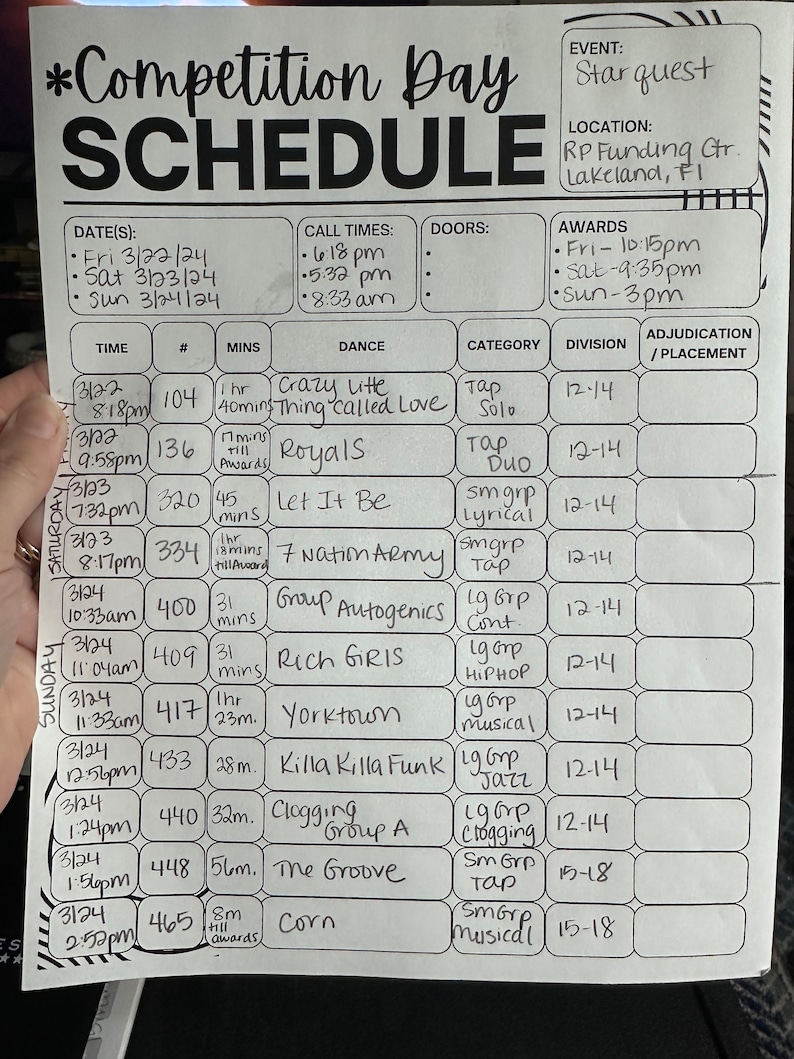 *Competition Day
SCHEDULE
EVENT:
Starquest
LOCATION:
RP Funding Ctr.
Lakeland, Fl
DATE(S):
• Fri 3/22/24
• Sat 3/23/24
• Sun 3/24/24
CALL TIMES:
• 6:18 pm
• 5:32 pm
• 8:33 am
DOORS:
•
•
•
AWARDS
• Fri - 10:15pm
• Sat - 9:35pm
• Sun - 3pm
TIME # MINS DANCE CATEGORY DIVISION ADJUDICATION
/ PLACEMENT
3/22
8:18pm
104
1 hr
40mins
Crazy Little
Thing Called Love
Tap
Solo
12-14
3/22
9:58pm
136
17 mins
till
Awards
Royals
Tap
Duo
12-14
SATURDAY
3/23
7:32pm
320
45
mins
Let It Be
sm grp
Lyrical
12-14
3/23
8:17pm
334
1hr
18mins
till Award
7 Nation Army
Sm grp
Tap
12-14
SUNDAY
3/24
10:33am
400
31
mins
Group Autogenics
Lg Grp
Cont.
12-14
3/24
11:04am
409
31
mins
Rich Girls
Lg Grp
Hip Hop
12-14
3/24
11:33am
417
1hr
23m.
Yorktown
Lg Grp
musical
12-14
3/24
12:56pm
433
28m.
Killa Killa Funk
Lg Grp
Jazz
12-14
3/24
1:24pm
440
32m.
Clogging
Group A
Lg Grp
Clogging
12-14
3/24
1:56pm
448
56m.
The Groove
Sm Grp
Tap
15-18
3/24
2:52pm
465
8m
till
awards
Corn
Sm Grp
Musical
15-18